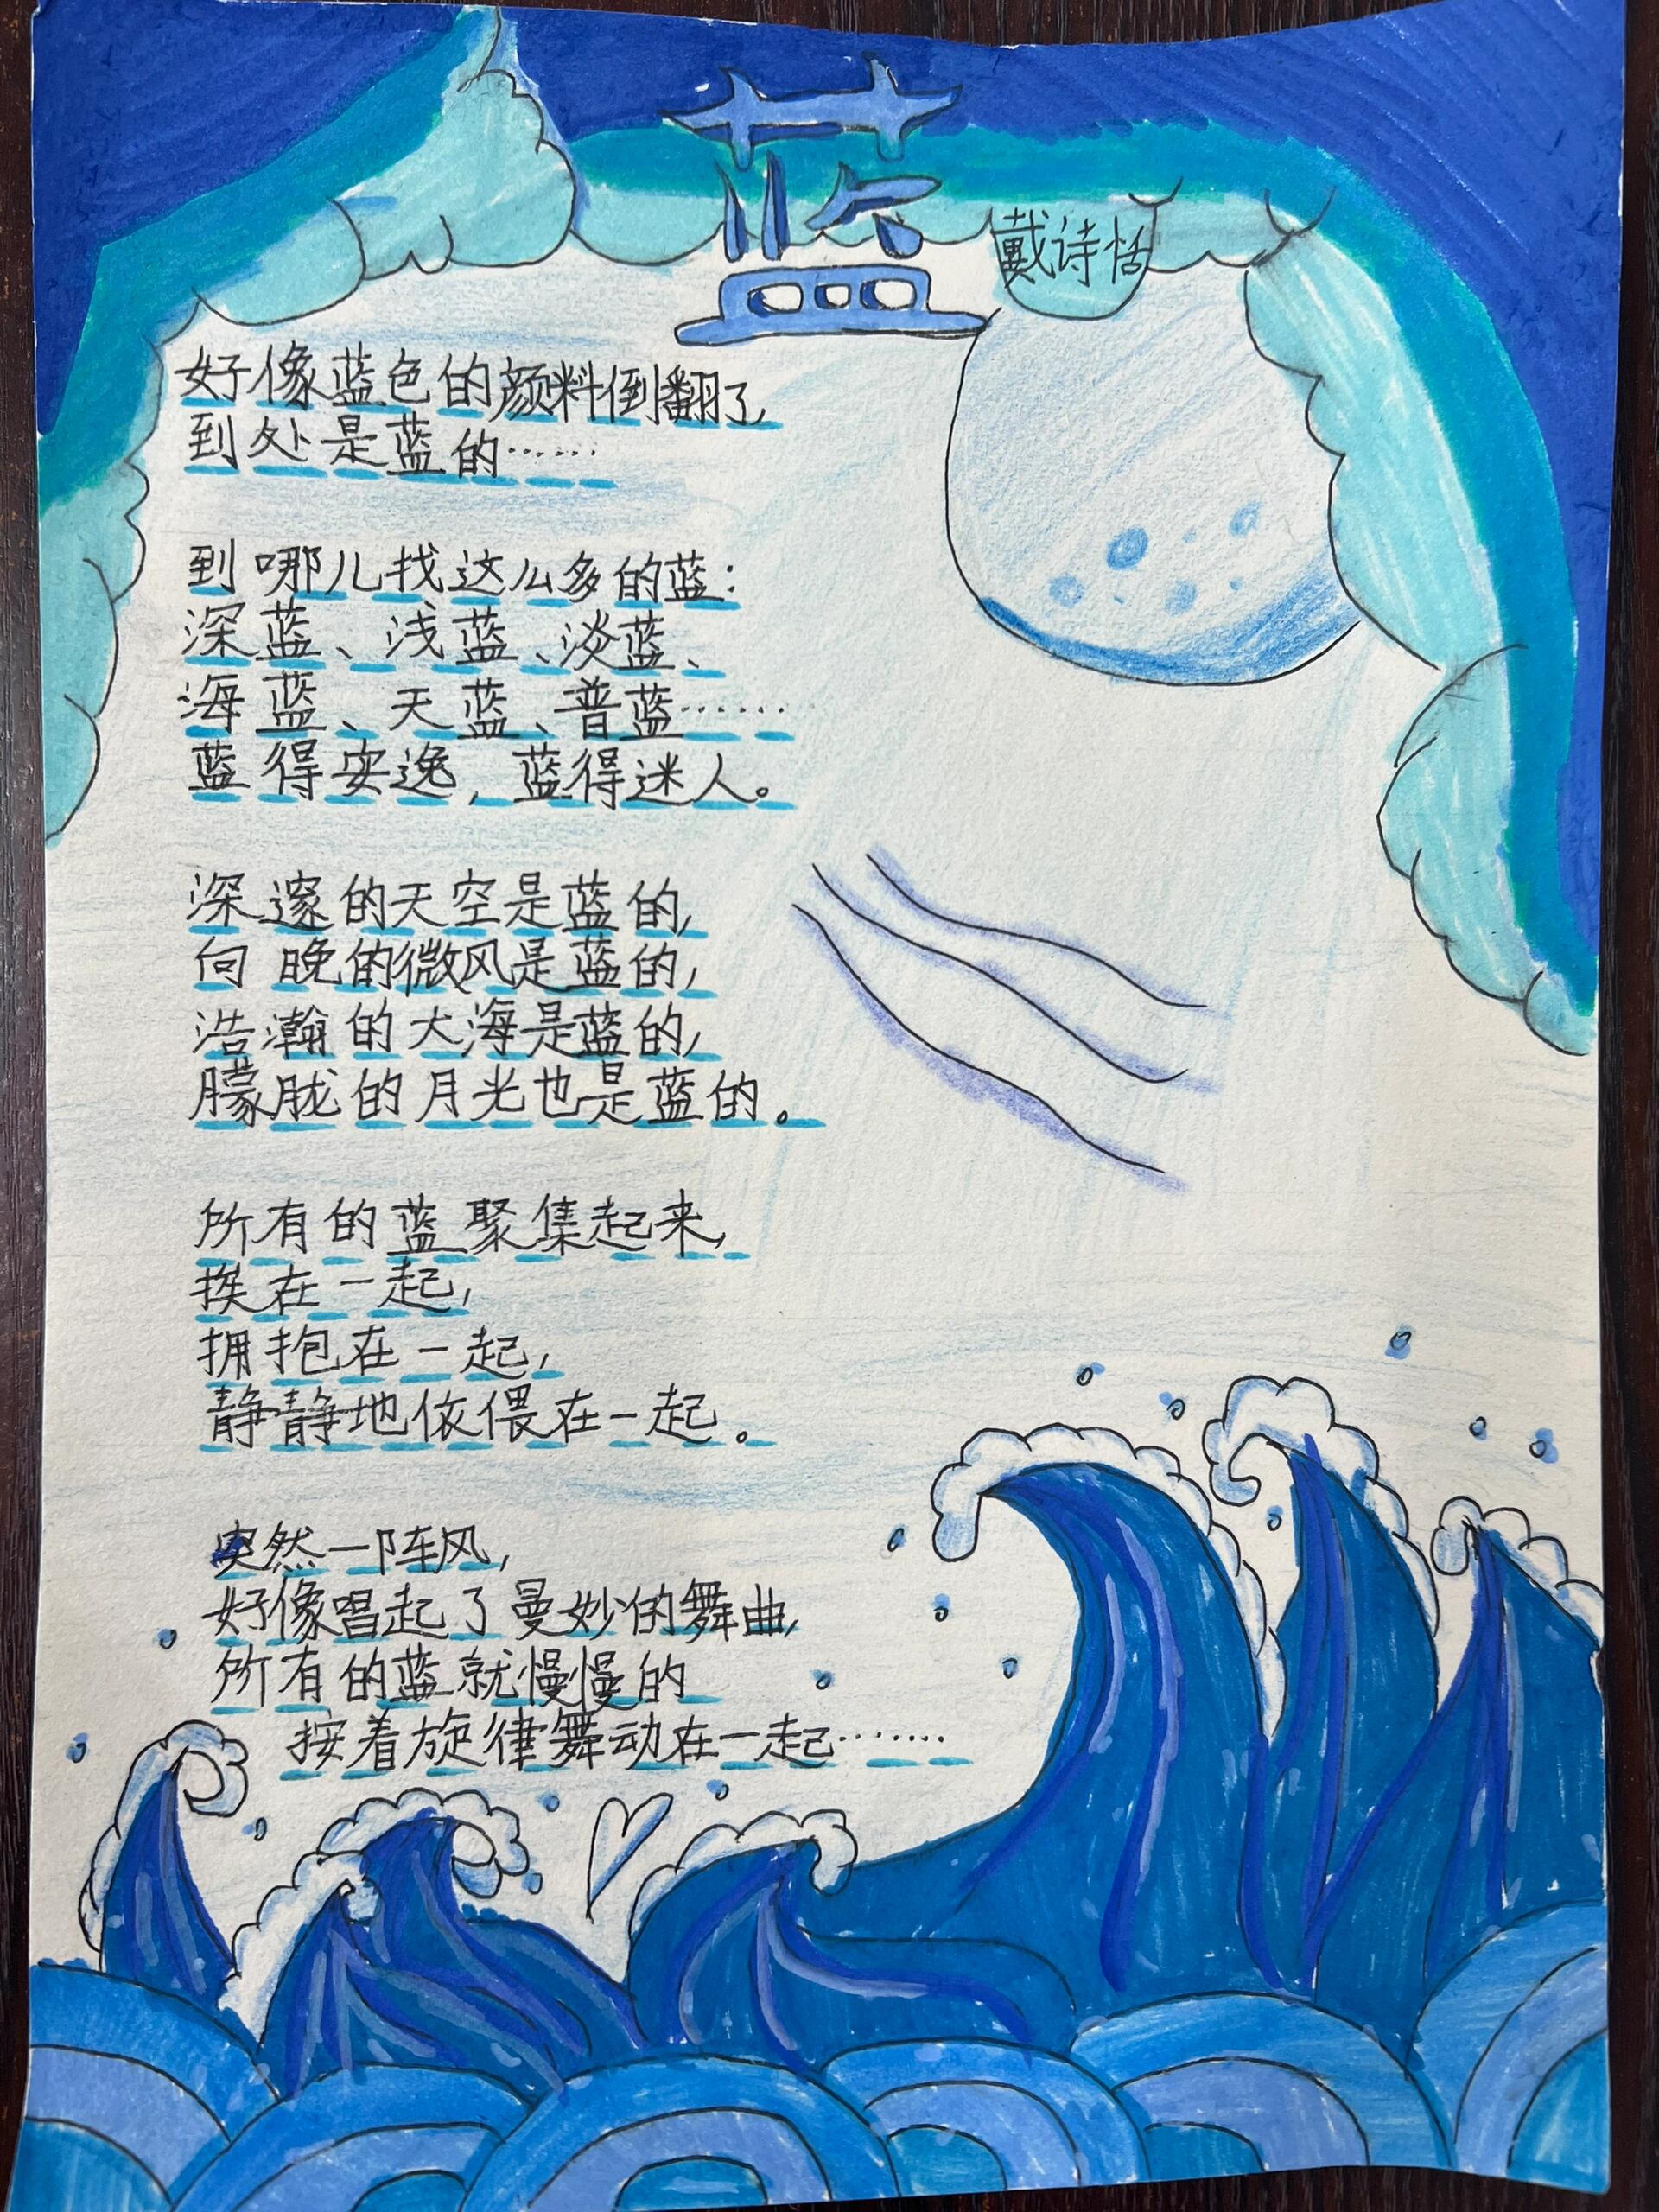 蓝
戴诗恬
好像蓝色的颜料倒翻了,
到处是蓝的……
到哪儿找这么多的蓝:
深蓝、浅蓝、淡蓝、
海蓝、天蓝、普蓝……
蓝得安逸,蓝得迷人。
深邃的天空是蓝的,
向晚的微风是蓝的,
浩瀚的大海是蓝的,
朦胧的月光也是蓝的。
所有的蓝聚集起来,
挨在一起,
拥抱在一起,
静静地依偎在一起。
突然一阵风,
好像唱起了曼妙的舞曲,
所有的蓝就慢慢的
按着旋律舞动在一起……